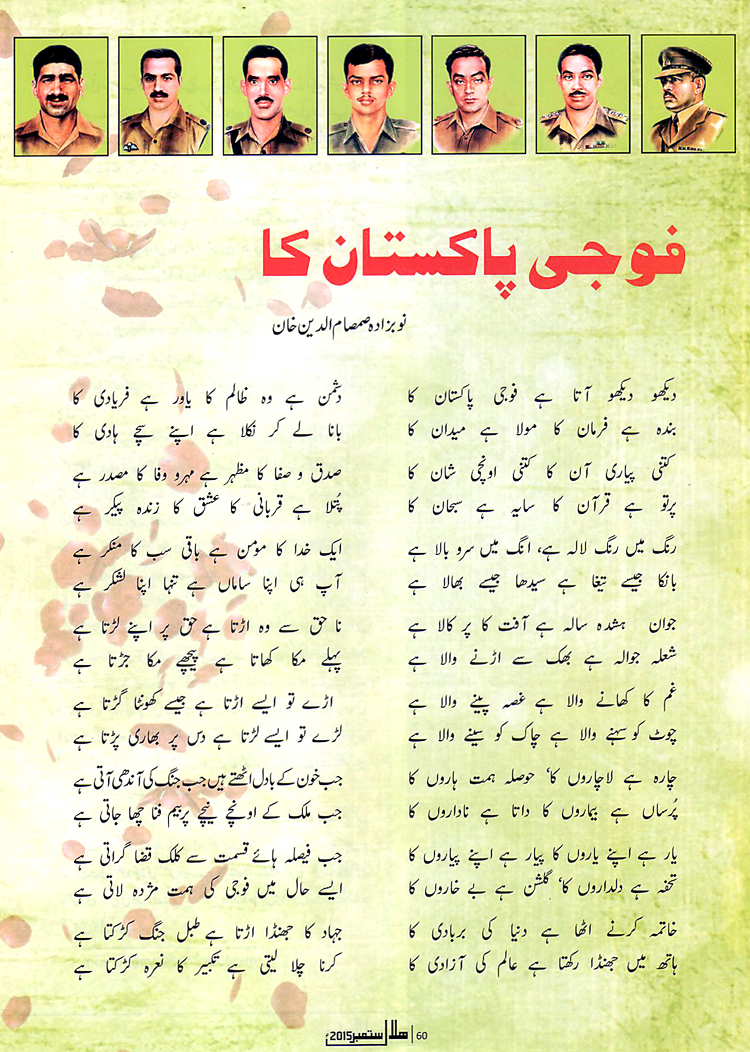 فوجی پاکستان کا
نوبزادہ صمصام الدین خان
دیکھو دیکھو آتا ہے فوجی پاکستان کا
بندہ ہے فرمان کا مولا ہے میدان کا
کتنی پیاری آن کا کتنی اونچی شان کا
پرتو ہے قرآن کا سایہ ہے سبحان کا
رنگ میں رنگ لالہ ہے، انگ میں سرو بالا ہے
بانکا جیسے تیغا ہے سیدھا جیسے بھالا ہے
جوان ہشدہ سالہ ہے آفت کا پر کالا ہے
شعلہ جوالہ ہے بھک سے اڑنے والا ہے
غم کا کھانے والا ہے غصہ پینے والا ہے
چوٹ کو سہنے والا ہے چاک کو سینے والا ہے
چارہ ہے لاچاروں کا، حوصلہ ہمت ہاروں کا
پُرساں ہے بیماروں کا داتا ہے ناداروں کا
یار ہے اپنے یاروں کا پیار ہے اپنے پیاروں کا
تحفہ ہے دلداروں کا، گلشن ہے بے خاروں کا
خاتمہ کرنے اٹھا ہے دنیا کی بربادی کا
ہاتھ میں جھنڈا رکھتا ہے عالم کی آزادی کا
دشمن ہے وہ ظالم کا یاور ہے فریادی کا
بانا لے کر نکلا ہے اپنے سچے ہادی کا
صدق و صفا کا مظہر ہے مہرو وفا کا مصدر ہے
پُتلا ہے قربانی کا عشق کا زندہ پیکر ہے
ایک خدا کا مؤمن ہے باقی سب کا منکر ہے
آپ ہی اپنا ساماں ہے تنہا اپنا لشکر ہے
نا حق سے وہ اڑتا ہے حق پر اپنے لڑتا ہے
پہلے مکا کھاتا ہے پیچھے مکا جڑتا ہے
اڑے تو ایسے اڑتا ہے جیسے کھونٹا گڑتا ہے
لڑے تو ایسے لڑتا ہے دس پر بھاری پڑتا ہے
جب خون کے بادل اٹھتے ہیں جب جنگ کی آندھی آتی ہے
جب ملک کے اونچے نیچے پر بیم فنا چھا جاتی ہے
جب فیصلہ ہائے قسمت سے کلک قضا گراتی ہے
ایسے حال میں فوجی کی ہمت مژدہ لاتی ہے
جہاد کا جھنڈا اڑتا ہے طبل جنگ کڑکتا ہے
کرنا چلا لیتی ہے تکبیر کا نعرہ کڑکتا ہے
60 ھلال ستمبر 2015ء